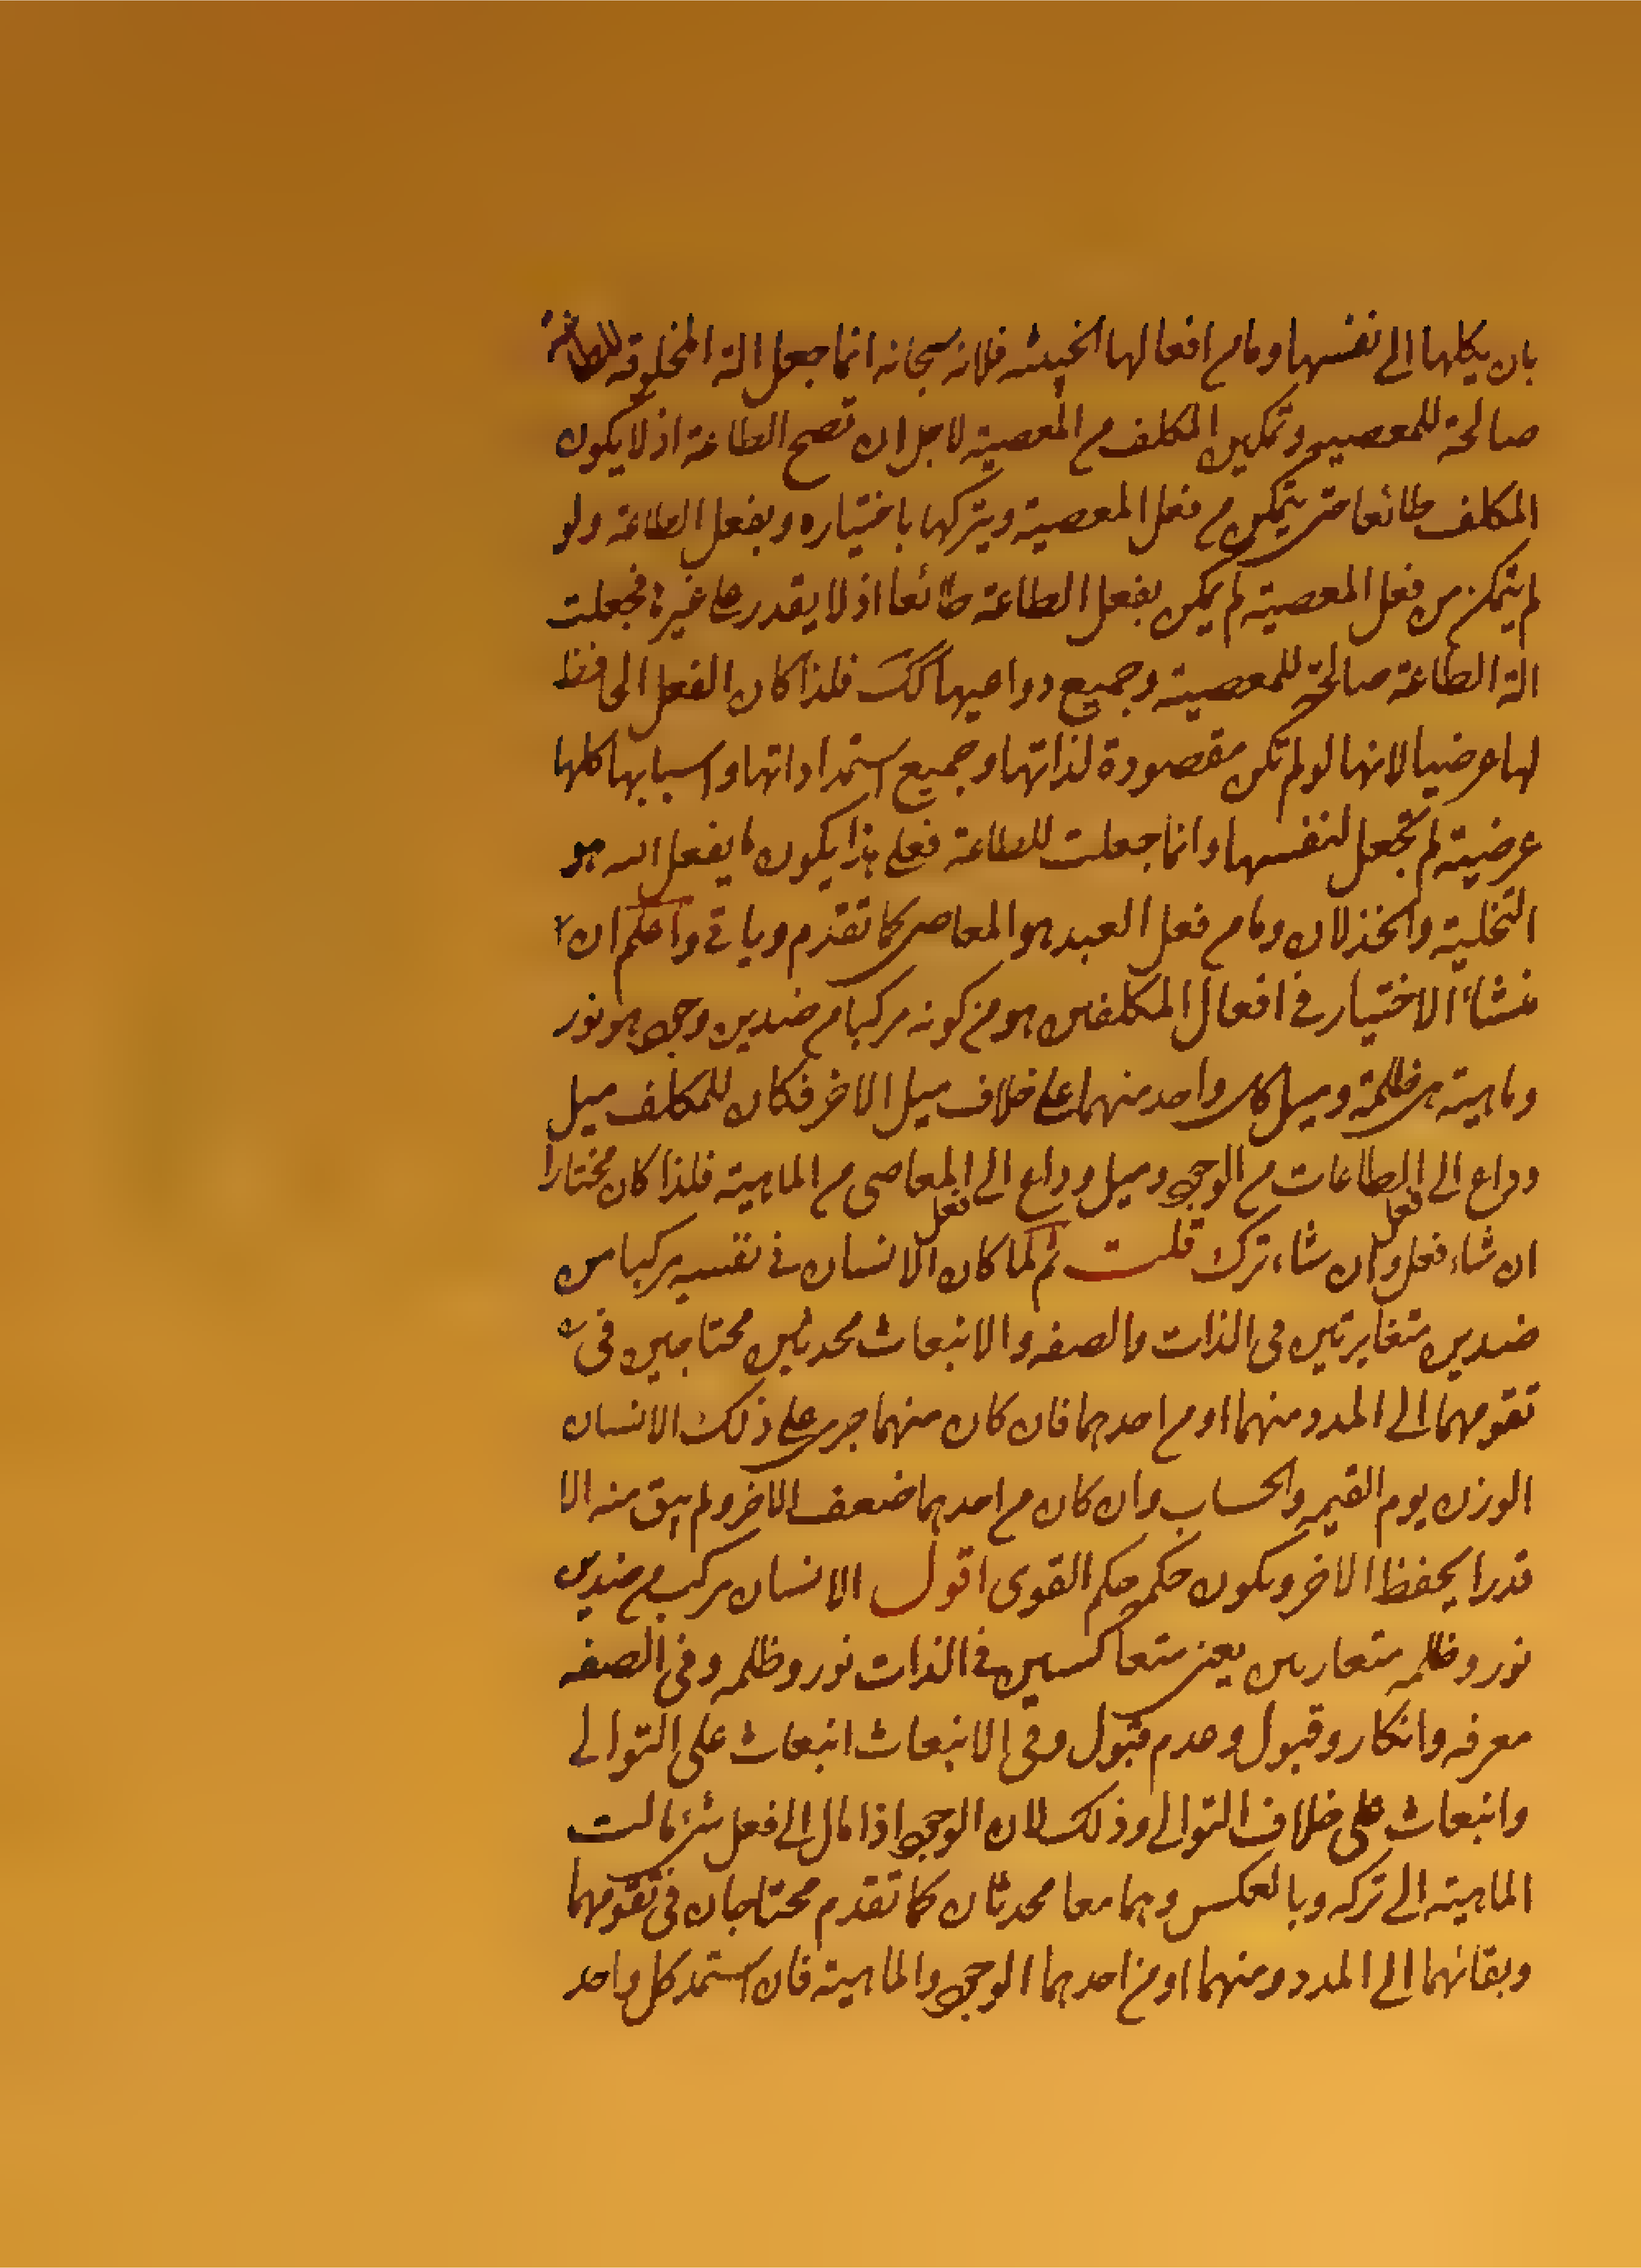 بان يكلها الى نفسها وما م افعالها الخبيثه فلانه سبحانه انما جعل الة المخلوقه للطاعة
صالحة للمعصيه و تمكين المكلف م المعصية لاجل ان تصح الطاعة اذ لا يكون
المكلف طائعا حتى يتمكن م فعل المعصية ويتركها باختياره ويفعل الطاعة ولو
لم يتمكن من فعل المعصية لم يكن بفعل الطاعة طائعا اذ لا يقدر على غيره فجعلت
الة الطاعة صالحة للمعصية وجميع دواعيها كك فلذا كان الفعل الحافظ
لها عرضيا لانها لو لم تكن مقصودة لذاتها وجميع استمداداتها واسبابها كلها
عرضية لم تجعل لنفسها وانما جعلت للطاعة فعلى هذا يكون ما يفعل الله هو
التخلية والخذلان وما م فعل العبد هو المعاصى كما تقدم وياتى واعلم ان
منشأ الاختيار فى افعال المكلفين هو من كونه مركبا م ضدين وجو هو نور
وماهية هى ظلمة وميل كل واحد منهما على خلاف ميل الاخر فكان للمكلف ميل
وداع الى الطاعات م الوجو وميل وداع الى المعاصى م الماهية فلذا كان مختارا
ان شاء فعل وان شاء ترك قلت ثم لما كان الانسان فى نفسه مركبا من
ضدين متغايرتين فى الذات والصفه والانبعاث محدثين محتاجين فى
تقومهما الى المدد منهما او م احدهما فان كان منهما جرى على ذلك الانسان
الوزن يوم القيمه والحساب وان كان م احدهما ضعف الاخر ولم يبق منه الا
قدرا يحفظ الاخر ويكون حكمه حكم القوى اقول الانسان مركب م ضدين
نور وظلمه يعنى متعاكسين فى الذات نور وظلمه وفى الصفه
معرفه وانكار وقبول وعدم قبول وفى الانبعاث انبعاث على التوالى
وانبعاث على خلاف التوالى وذلك لان الوجو اذا مال الى فعل شئ مالت
الماهية الى تركه وبالعكس وهما معا محدثان كما تقدم محتاجان فى تقومهما
وبقائهما الى المدد ومنهما او من احدهما الوجو والماهية فان استمد كل واحد